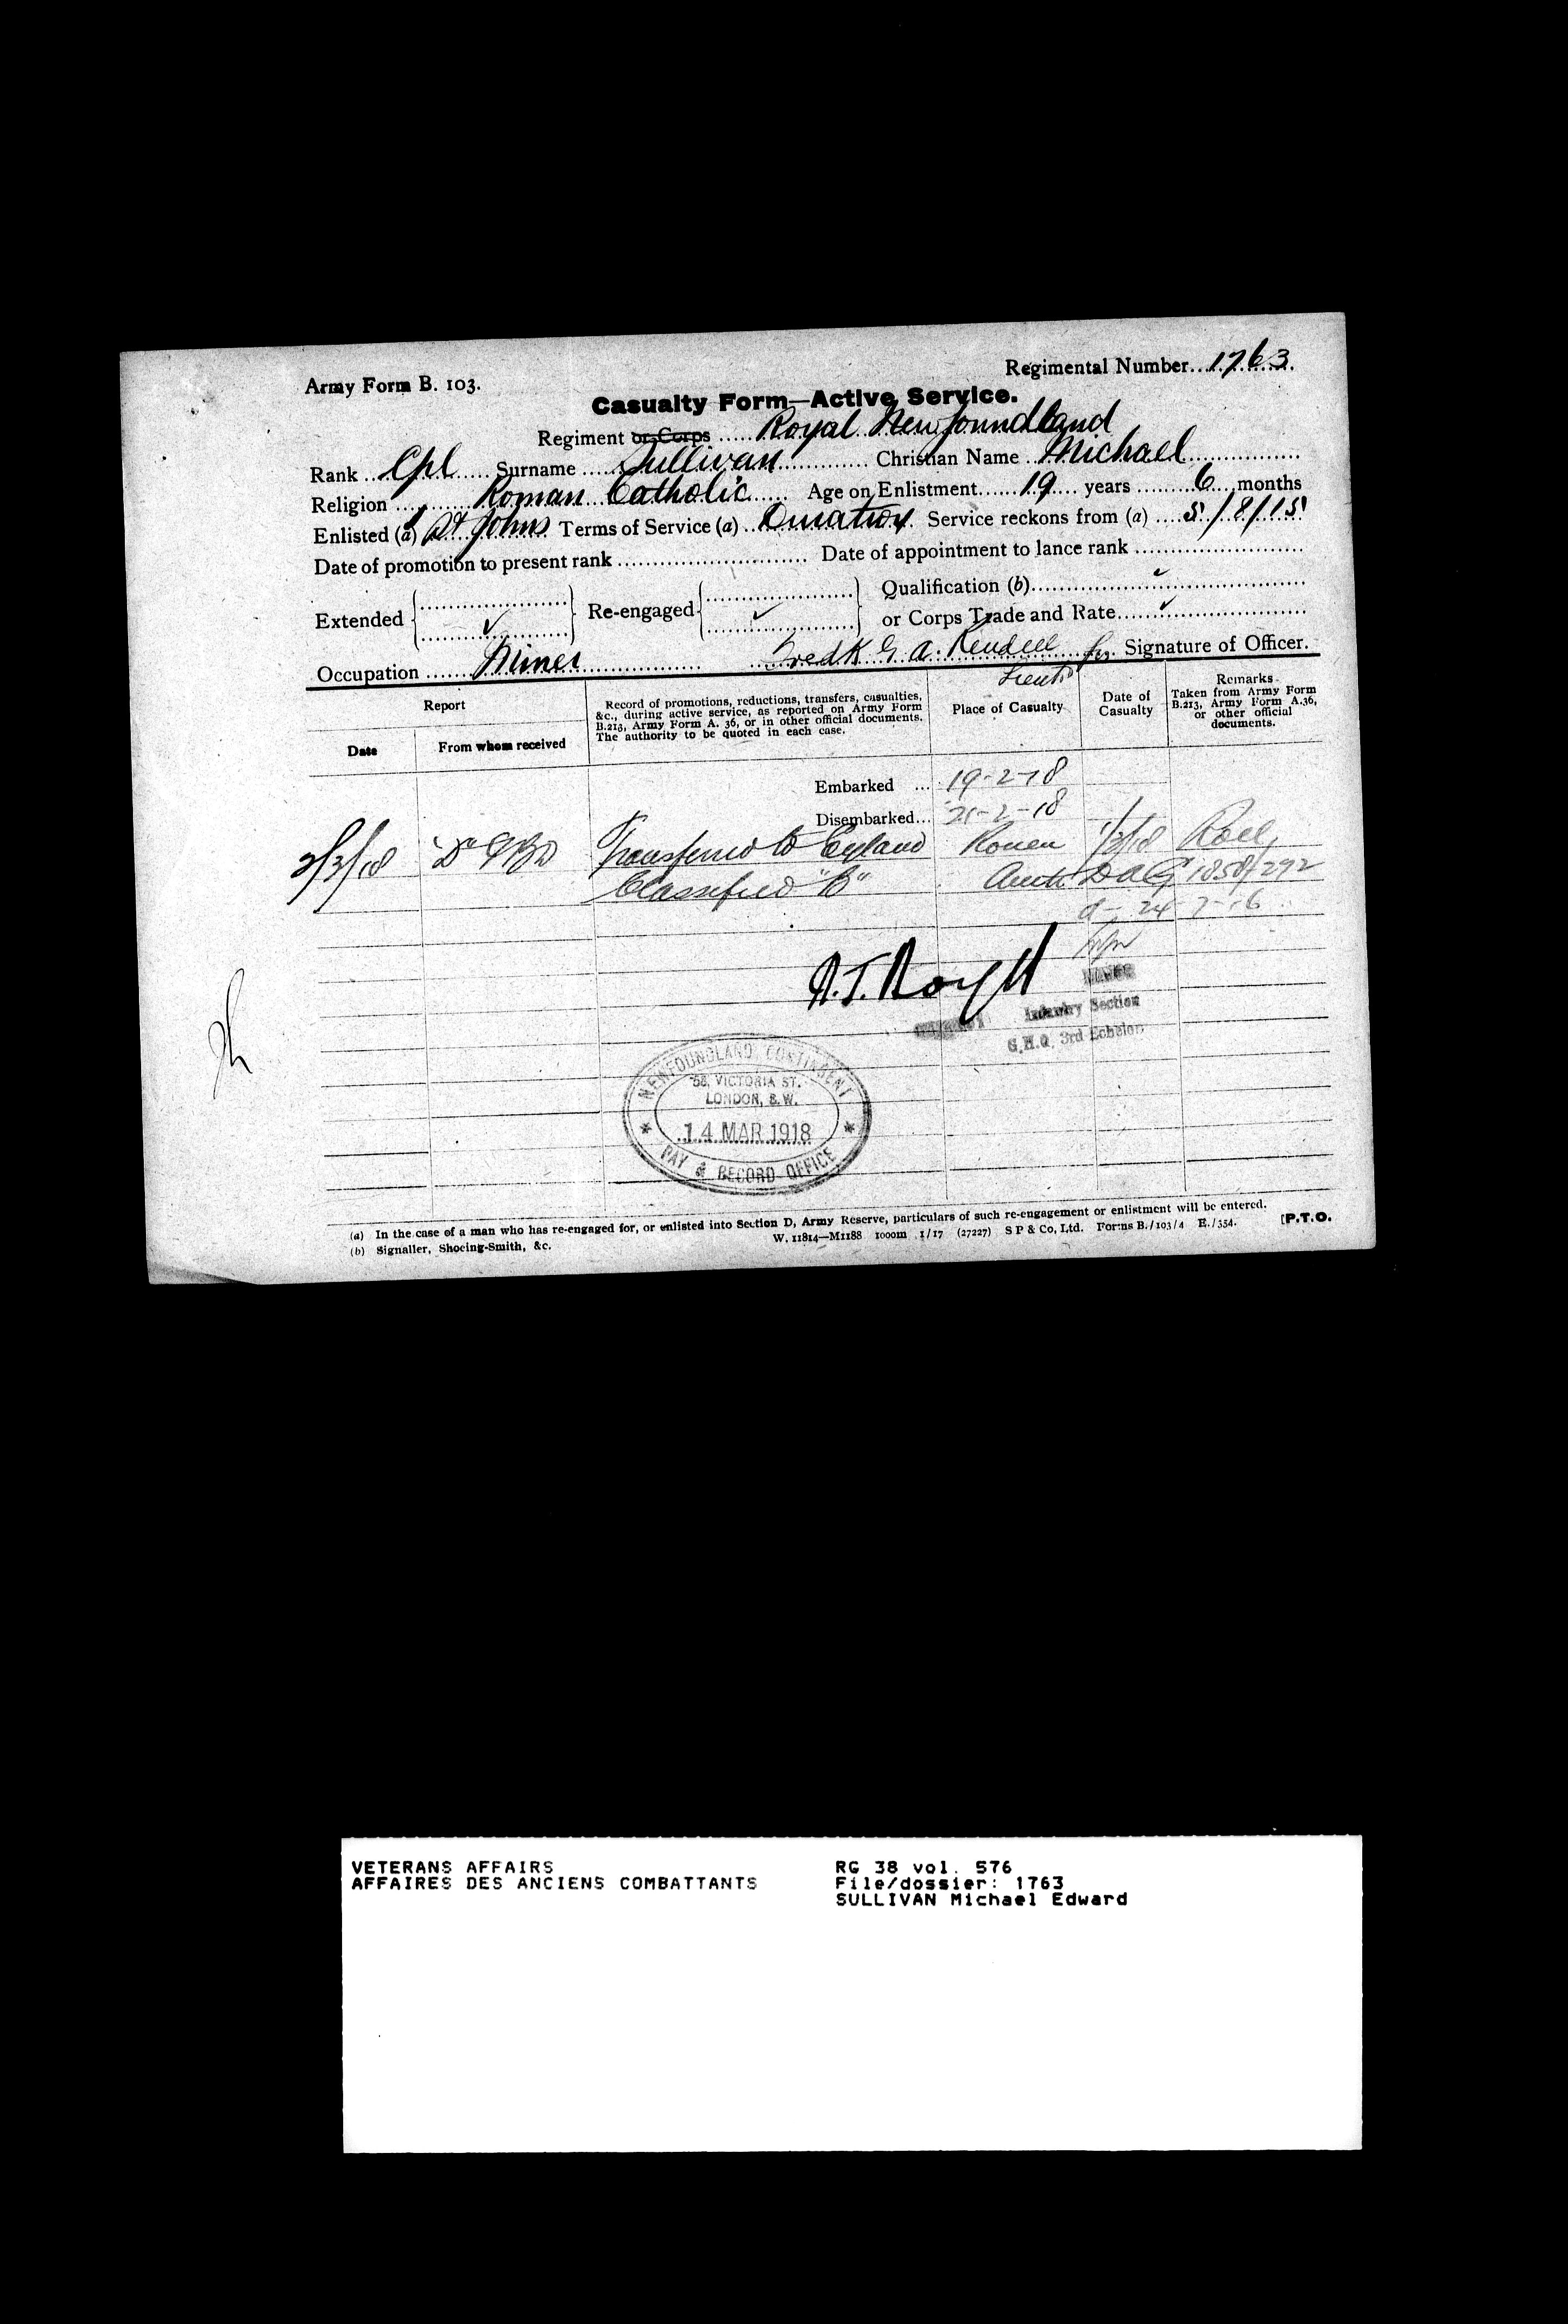 Regimental Number...1763.
Army Form B. 103.
Casualty Form—Active Service.
Regiment or Corps ..... Royal Newfoundland
Rank ... Cpl ..... Surname ..... Sullivan ............ Christian Name ... Michael ............
Religion ............ Roman Catholic ...... Age on Enlistment ...... 19 .... years ......... 6 ... months
Enlisted (a) St Johns Terms of Service (a) .. Duration . Service reckons from (a) .... 5/8/15
Date of promotion to present rank ............................ Date of appointment to lance rank ............................
Extended { ✓ } Re-engaged { ✓ } Qualification (b) ............ ✓ ............
or Corps Trade and Rate ...... ✓ ............
Occupation ....... Miner .................. Fredk G. A. Rendell for Signature of Officer.
Lieut
Report
Date
From whom received
Record of promotions, reductions, transfers, casualties,
&c., during active service, as reported on Army Form
B.213, Army Form A. 36, or in other official documents.
The authority to be quoted in each case.
Place of Casualty
Date of
Casualty
Remarks
Taken from Army Form
B.213, Army Form A.36,
or other official
documents.
Embarked ... 19-2-18
Disembarked... 21-2-18
2/3/18 Transferred to England Rouen 1/3/18 Roll
Classified "B" Auth DAG 1858/292
24-7-16
Infantry Section
G.H.Q. 3rd Echelon
NEWFOUNDLAND CONTINGENT
58, VICTORIA ST.
LONDON, S.W.
14 MAR 1918
PAY & RECORD OFFICE
(a) In the case of a man who has re-engaged for, or enlisted into Section D, Army Reserve, particulars of such re-engagement or enlistment will be entered.
(b) Signaller, Shoeing-Smith, &c.
W. 11814—M1188 1000m 1/17 (27227) S P & Co, Ltd. Forms B./103/4 E./354.
[P.T.O.
VETERANS AFFAIRS
AFFAIRES DES ANCIENS COMBATTANTS
RG 38 vol. 576
File/dossier: 1763
SULLIVAN Michael Edward